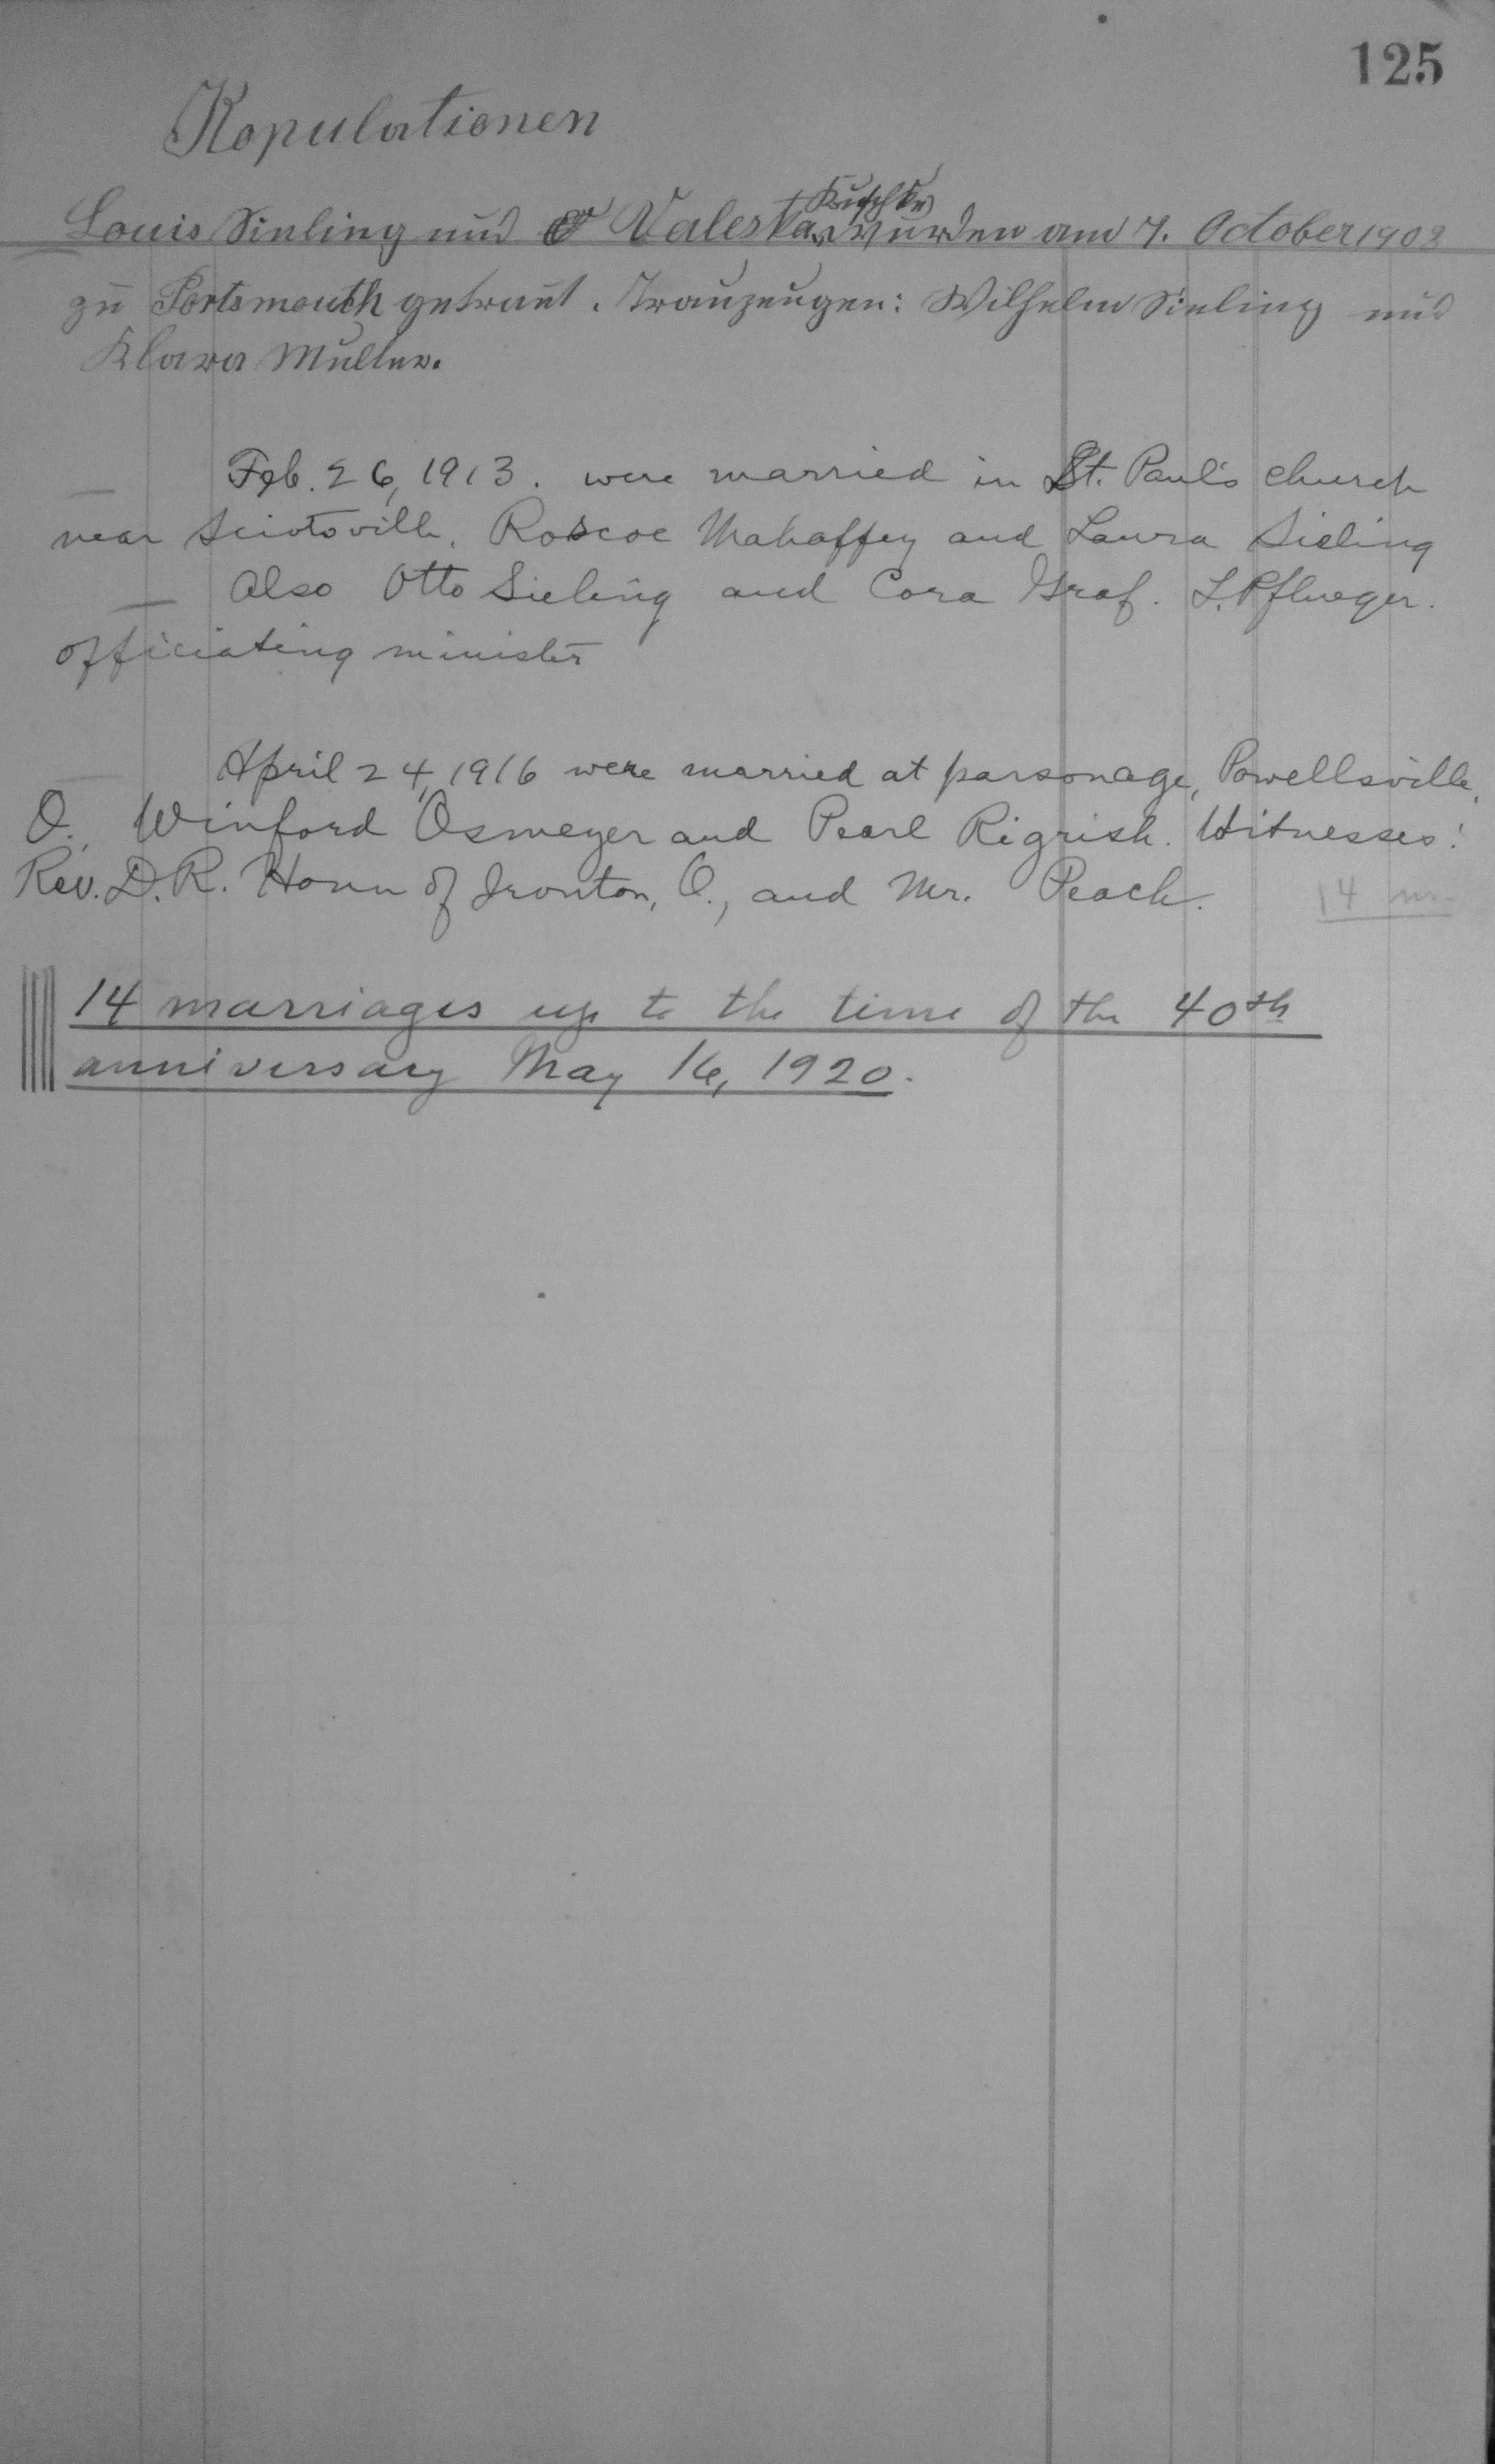 125
Kopulationen
Kuschke
Louis Sieling und Valeska wurden am 7. October 1903
zu Portsmouth getraut. Trauzeugen: Wilhelm Sieling und
Klara Muller.
Feb. 26, 1913. were married in St. Paul's church
near Sciotoville, Roscoe Mahaffey and Laura Sieling
Also Otto Sieling and Cora Graf. L. Pflueger.
officiating minister
April 24, 1916 were married at parsonage, Powellsville,
O., Winford Osmeyer and Pearl Rigrish. Witnesses:
Rev. D. R. Honn of Ironton, O., and Mr. Peach.
14 m.
14 marriages up to the time of the 40th
anniversary May 16, 1920.